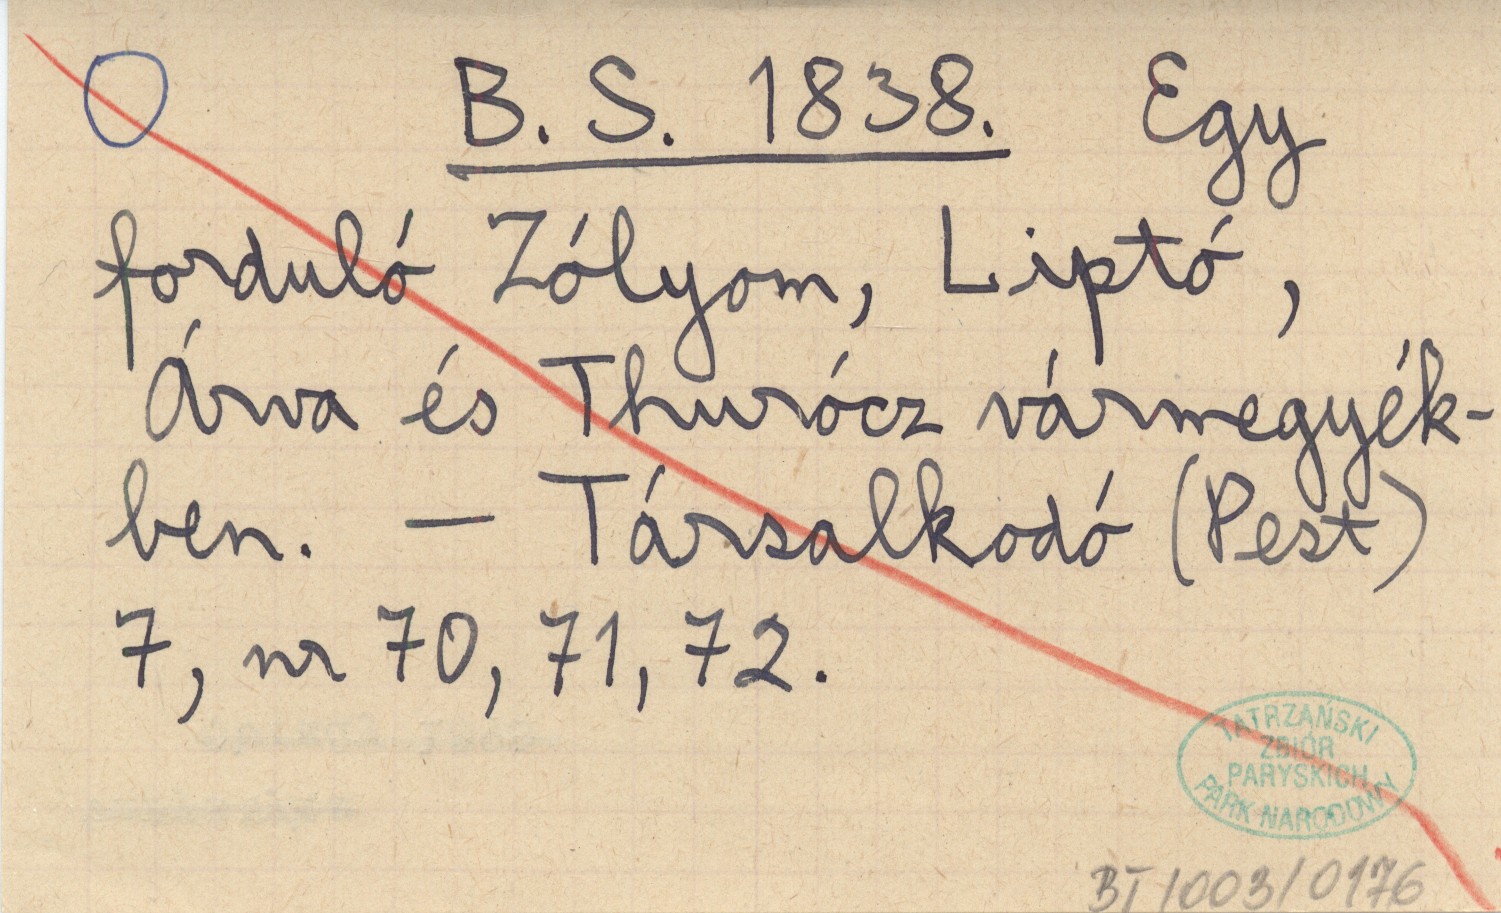 B. S. 1838. Egy
forduló Zólyom, Liptó,
Árva és Thurócz vármegyék-
ben. — Társalkodó (Pest)
7, nr 70, 71, 72.
TATRZAŃSKI
ZBIÓR
PARYSKICH
PARK NARODOWY
BT/003/0176